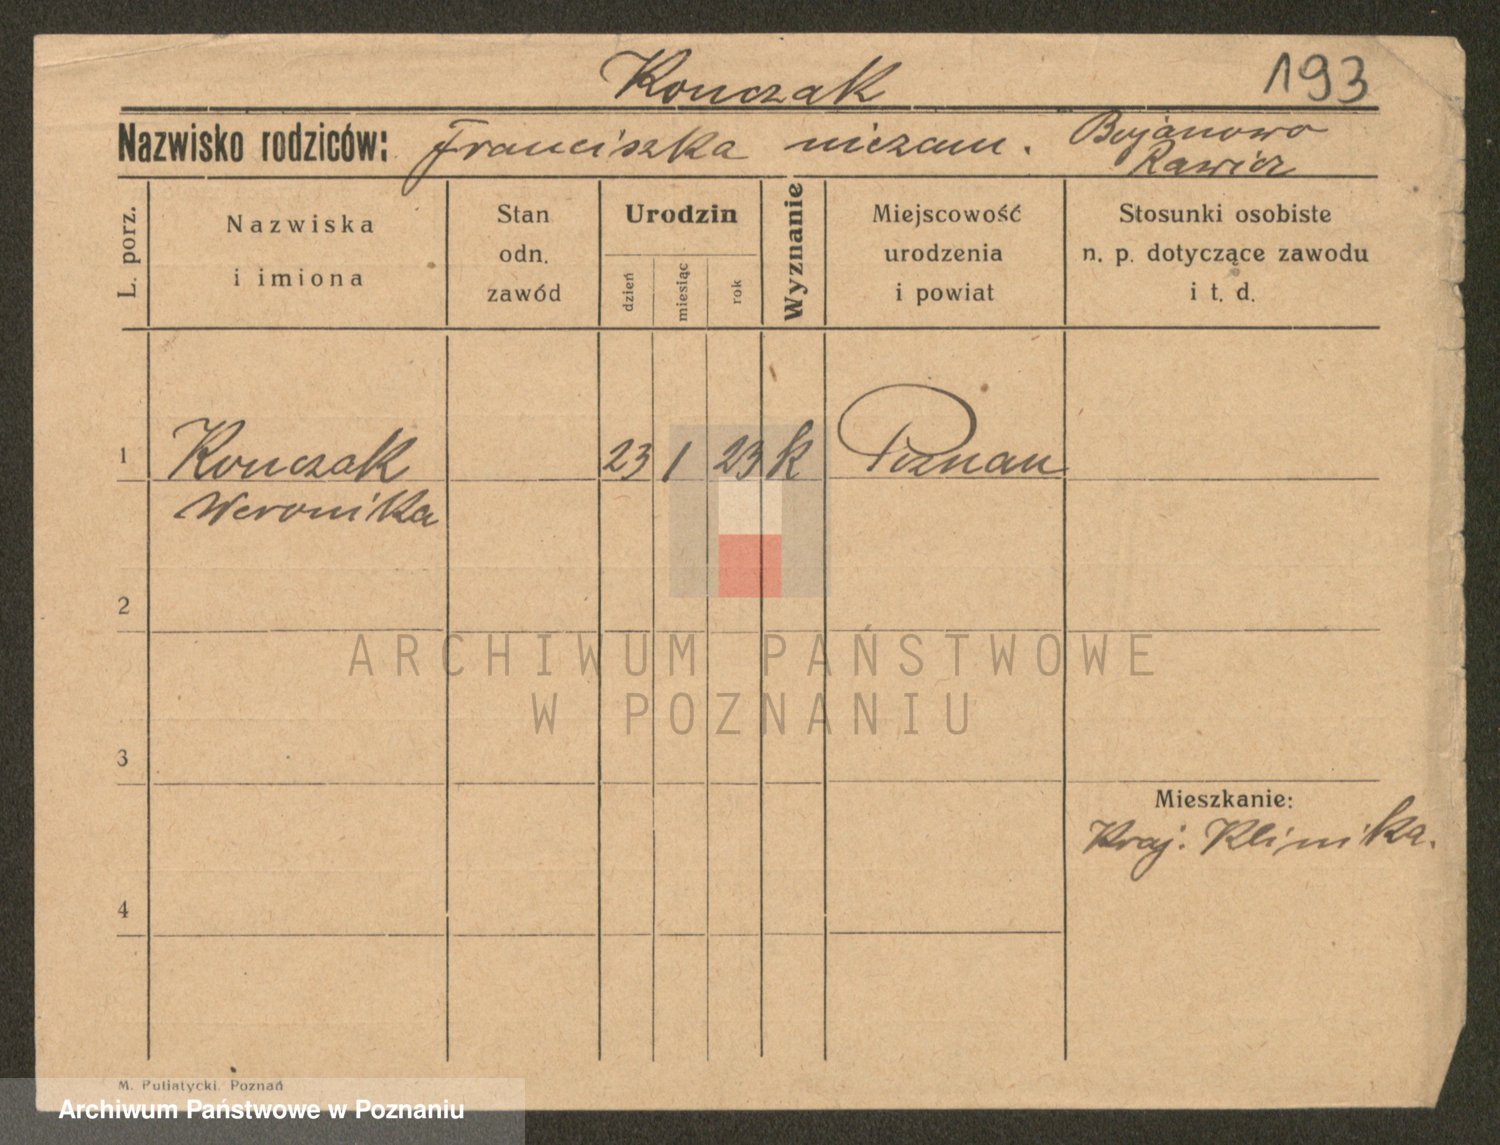 Konczak
193
Nazwisko rodziców: Franciszka niezam. Bojanowo
Rawicz
L. porz.
Nazwiska
i imiona
Stan
odn.
zawód
Urodzin
dzień
miesiąc
rok
Wyznanie
Miejscowość
urodzenia
i powiat
Stosunki osobiste
n. p. dotyczące zawodu
i t. d.
1 Konczak 23 1 23 k Poznan
Weronika
2
3
Mieszkanie:
Kraj. Klinika.
4
ARCHIWUM PAŃSTWOWE
W POZNANIU
M. Putiatycki, Poznań
Archiwum Państwowe w Poznaniu